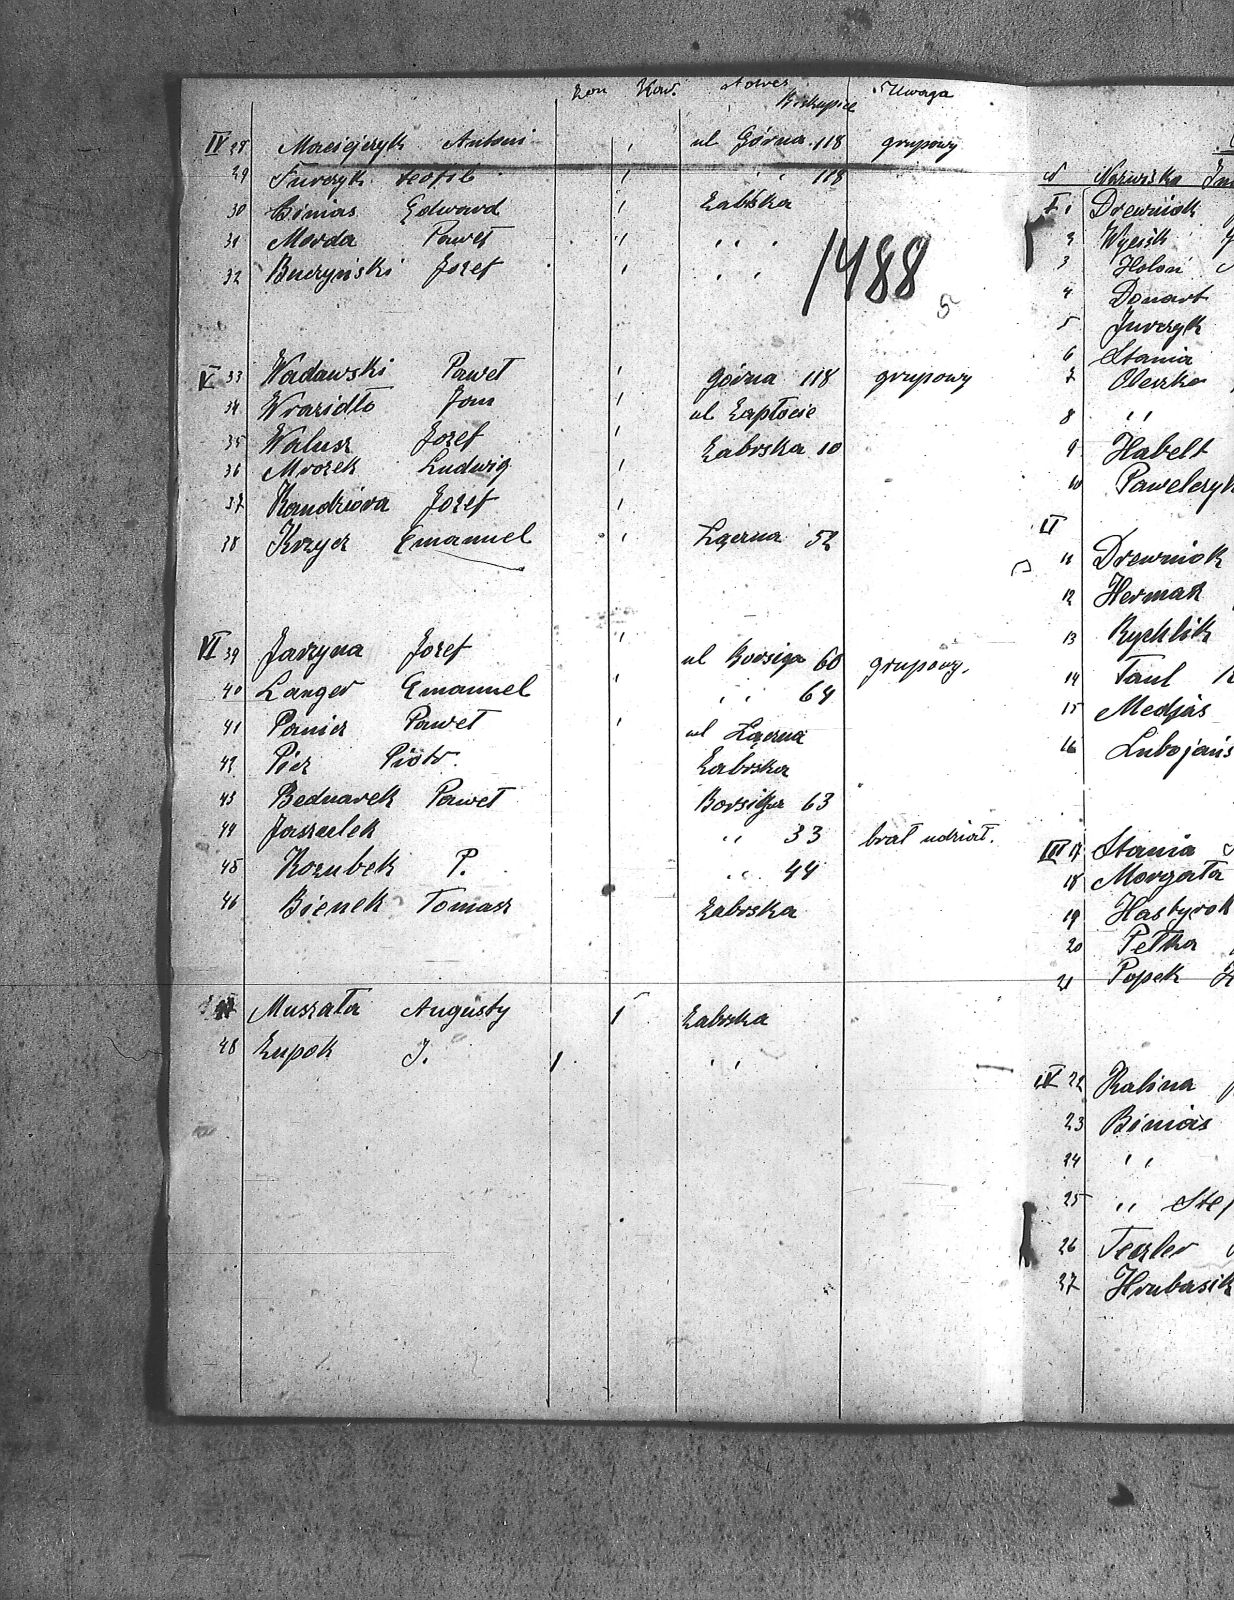 Żon Kaw. Adres Uwaga
Biskupice
IV 28 Maciejczyk Antoni ul Górna 118 grupowy
29 Jurczyk Teofil " 118
30 Binias Edward Zabrska
31 Morda Paweł " "
32 Buczyński Józef " "
1488
5
V 33 Wadawski Paweł Górna 118 grupowy
34 Wrazidło Jan ul Zapłocie
35 Walusz Józef Zabrska 10
36 Mrozek Ludwig
37 Kandziora Józef
38 Krzyez Emanuel Łączna 52
VI 39 Jarzyna Józef ul Borsiga 60 grupowy.
40 Langer Emanuel " " 64
41 Panicz Paweł ul Łączna
42 Piez Piotr. Zabrska
43 Bednarek Paweł Borsiga 63
44 Jaszulek " 33 brał udział.
45 Kozubek P. " 44
46 Bienek Tomasz Zabrska
47 Muszała Augusty Zabrska
48 Zupok J. " "
Nazwisko
I 1 Drewniok
2 Wycisk
3 Holoń
4 Donart
5 Jurczyk
6 Stania
7 Oleszko
8 " "
9 Habelt
10 Pawelczyk
II
11 Drewniok
12 Hermaz
13 Rychlik
14 Taul
15 Medjas
16 Lubojańs
III 17 Stania
18 Morgała
19 Hastyrok
20 Petka
21 Popek
IV 22 Kalina
23 Binias
24 " "
25 " " Stef
26 Teszler
27 Hrubasik